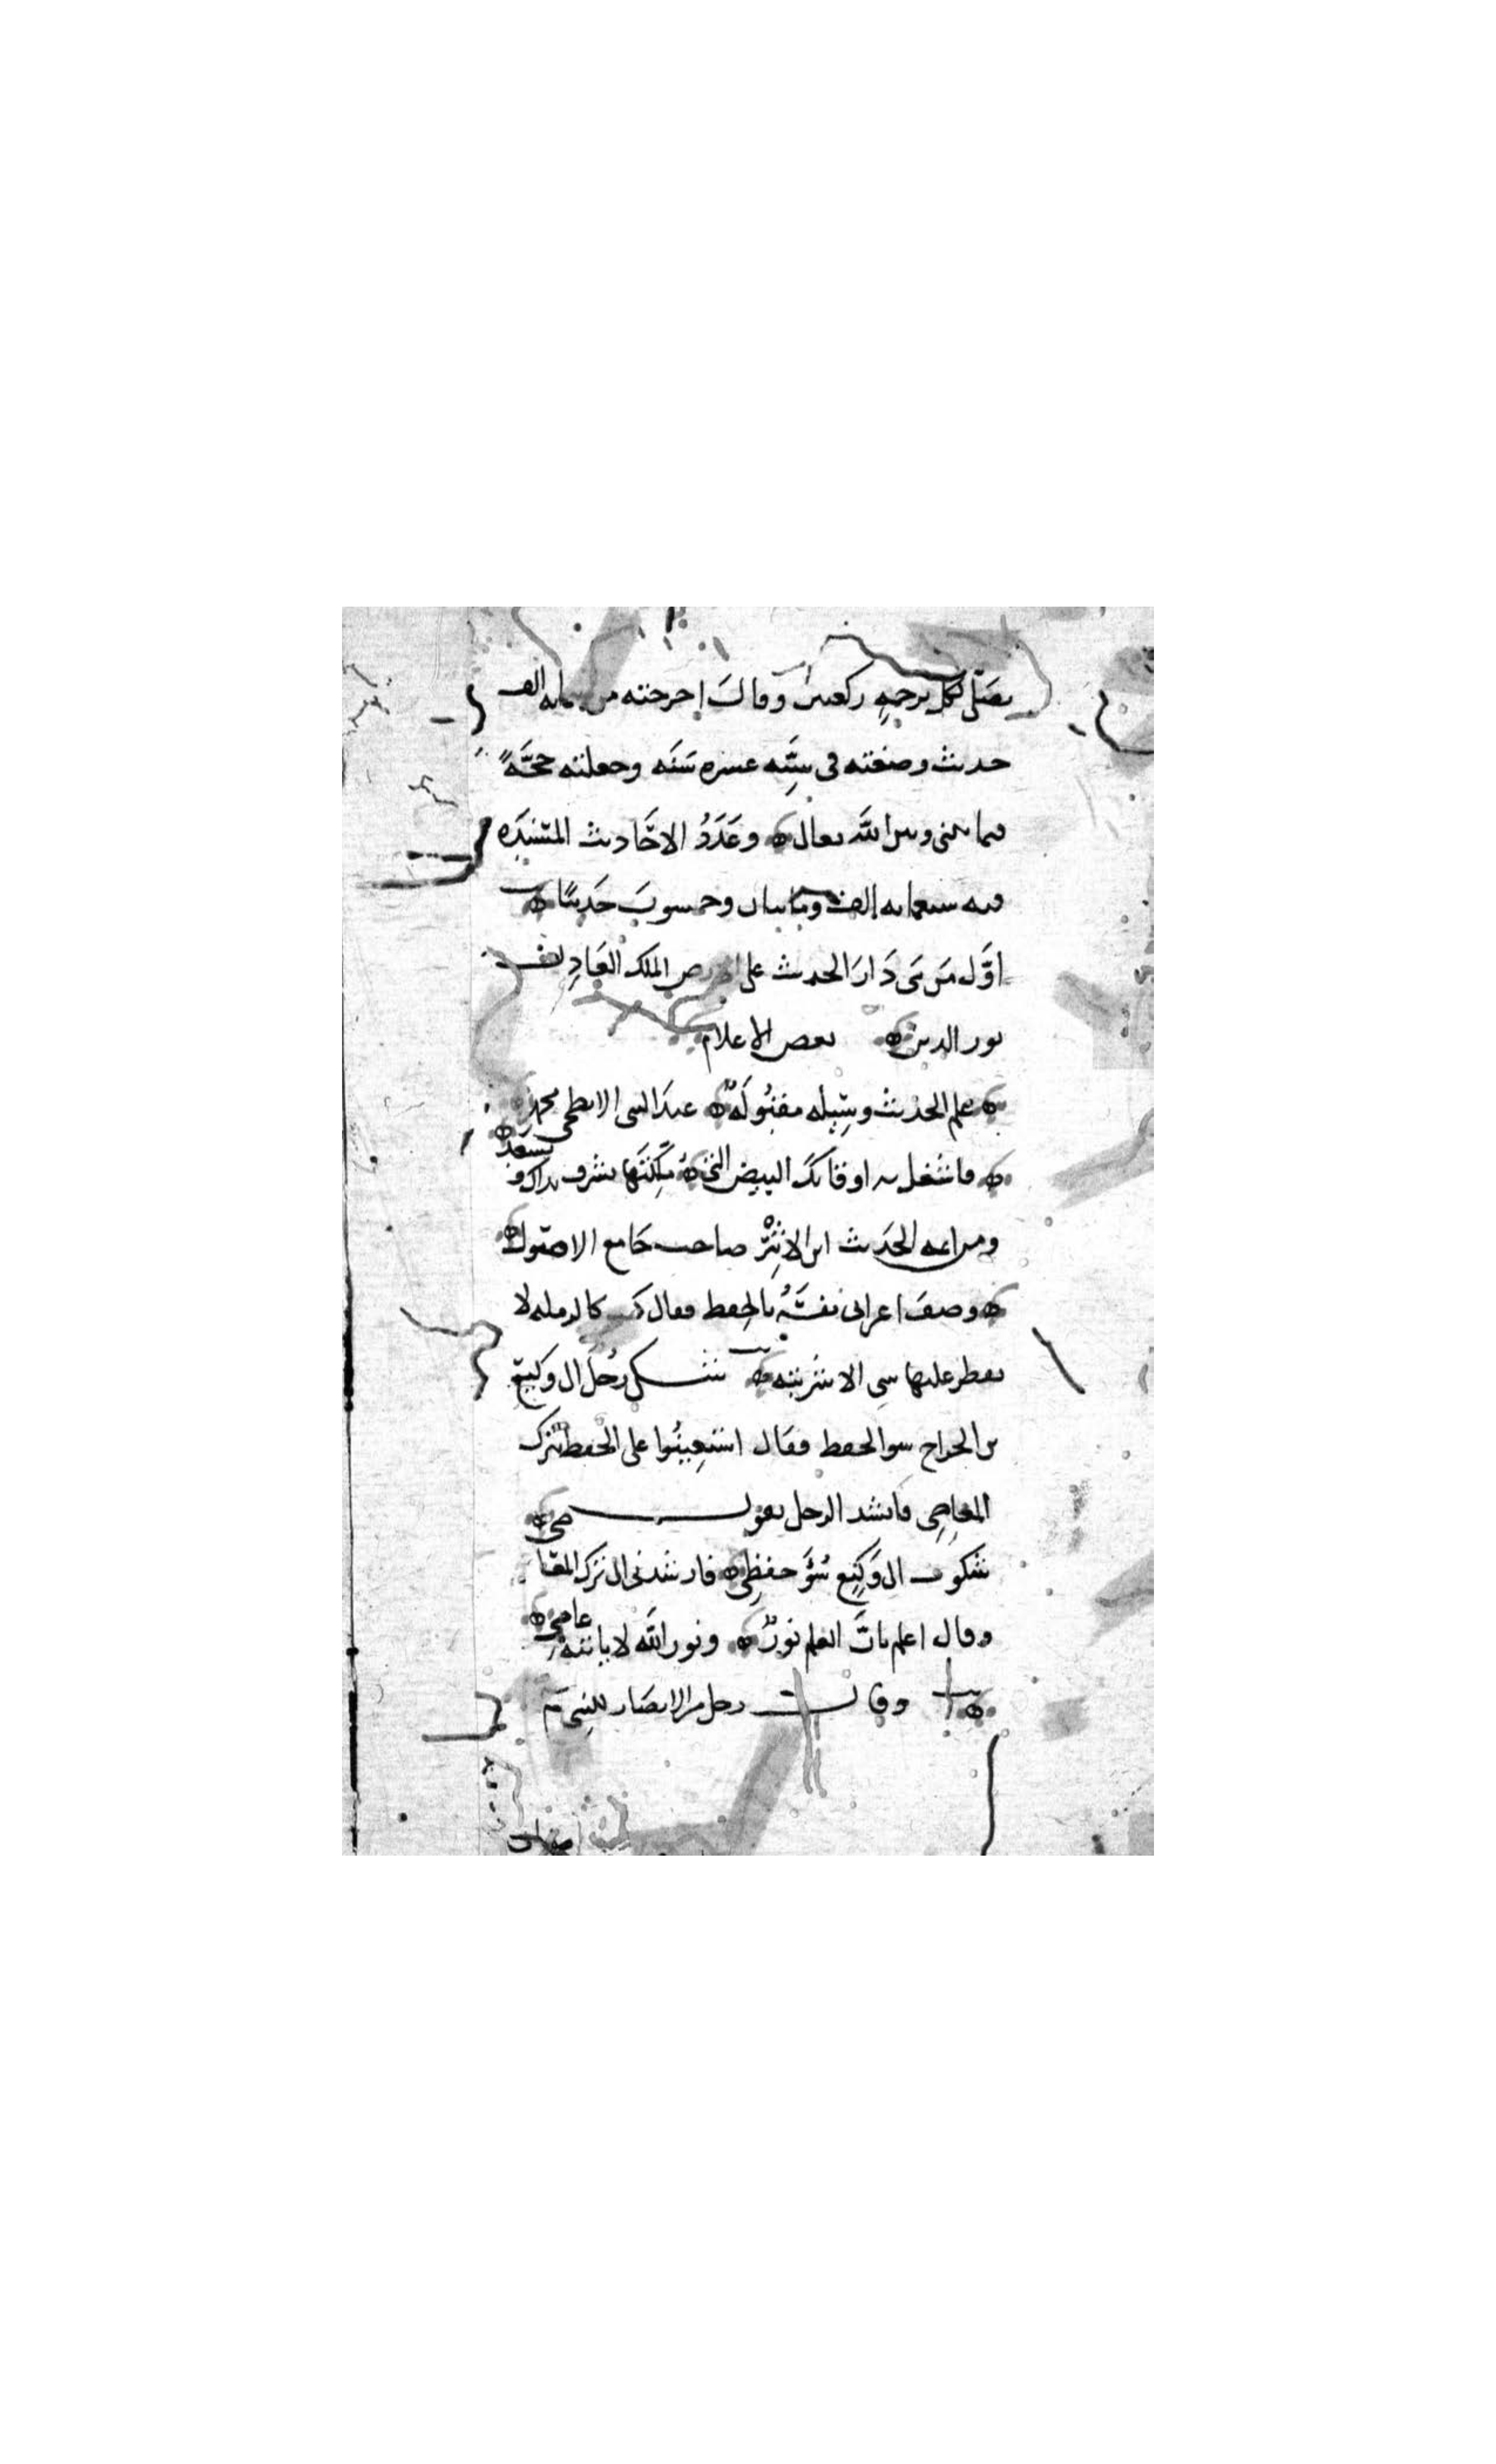 يصلي لكل ترجمة ركعتين وقال اخرجته من ستمايه الف
حديث وصنفته في ستة عشره سنه وجعلته حجة
فيما بيني وبين الله تعالى وعدد الاحاديث المسنده
فيه سبعمايه الف ومايتان وخمسون حديثا
اول من بنى دار الحديث على الارض الملك العادل
نور الدين بعض الاعلام
علم الحديث وسيلة مقبولة عند النبي الابطحي محمد
فاشغل به اوقاتك البيض التي ملكتها تشرف بذاك وتسعد
ومن ائمه الحديث ابن الاثير صاحب جامع الاصول
وصف اعرابي نفسه بالحفظ فقال كنت كالرمله لا
يقطر عليها شي الا شربته شكى رجل الى وكيع
بن الجراح سو الحفظ فقال استعينوا على الحفظ بترك
المعاصي فانشد الرجل يقول
شكوت الى وكيع سؤ حفظي فارشدني الى ترك المعاصي
وقال اعلم بان العلم نور ونور الله لا ياتيه عاصي
وقال رجل من الانصار للنبي